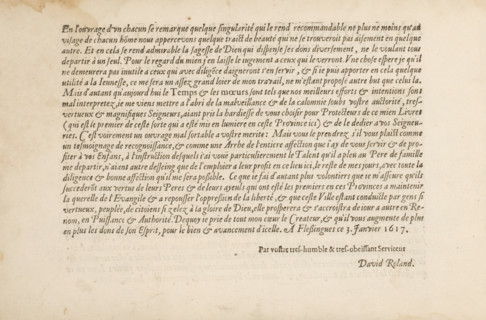 En l'ouvrage d'vn chacun se remarque quelque singularité qui le rend recommandable ne plus ne moins qu'au
visage de chacun hõme nous appercevons quelque traict de beauté qui ne se trouveroit pas aisement en quelque
autre. Et en cela se rend admirable la sagesse de Dieu qui dispense ses dons diversement, ne le voulant tous
departir à un seul. Pour le regard du mien j'en laisse le iugement a ceux qui le verront. Vne chose espere je qu'il
ne demeurera pas inutile a ceux qui avec diligẽce daigneront s'en servir, & si ie puis apporter en cela quelque
utilité a la Ieunesse, ce me sera un assez grand loier de mon travail, ne m'estant proposé autre but que celui la.
Mais d'autant qu'aujourd'hui le Temps & les mœurs sont tels que noz meilleurs efforts & intentions sont
mal interpretez, je me viens mettre a l'abri de la malveillance & de la calomnie soubs vostre auctorité, tres-
vertueux & magnifiques Seigneurs, aiant pris la hardiesse de vous choisir pour Protecteurs de ce mien Livret
(qui est le premier de ceste sorte qui a esté mis en lumiere en ceste Province ici) & de le dedier a voz Seigneu-
ries. C'est voirement un ouvrage mal sortable a vostre merite: Mais vous le prendrez s'il vous plaist comme
un tesmoignage de recognoissance, & comme une Arbe de l'entiere affection que i'ay de vous servir & de prof-
fiter à voz Enfans, à l'instruction desquels i'ai voué particulierement le Talent qu'il a pleu au Pere de famille
me departir, n'aiant autre desseing que de l'emploier a leur profit en ce lieu ici, le reste de mes jours, avec toute la
diligence & bonne affection qu'il me sera possible. Ce que je fai d'autant plus volontiers que ie m'asseure qu'ils
succederõt aux vertus de leurs Peres & de leurs ayeuls qui ont esté les premiers en ces Provinces a maintenir
la querelle de l'Evangile & a repousser l'oppression de la liberté, & que ceste Ville estant conduicte par gens si
vertueux, peuplée, de citoiens si zelez à la gloire de Dieu, elle prosperera & s'accroistra de iour a autre en Re-
nom, en Puissance & Authorité. Dequoy je prie de tout mon cœur le Createur, & qu'il vous augmente de plus
en plus les dons de son Esprit, pour le bien & avancement d'icelle. A Flessingues ce 3. Janvier 1617.
Par vostre tres-humble & tres-obeissant Serviteur
David Roland.